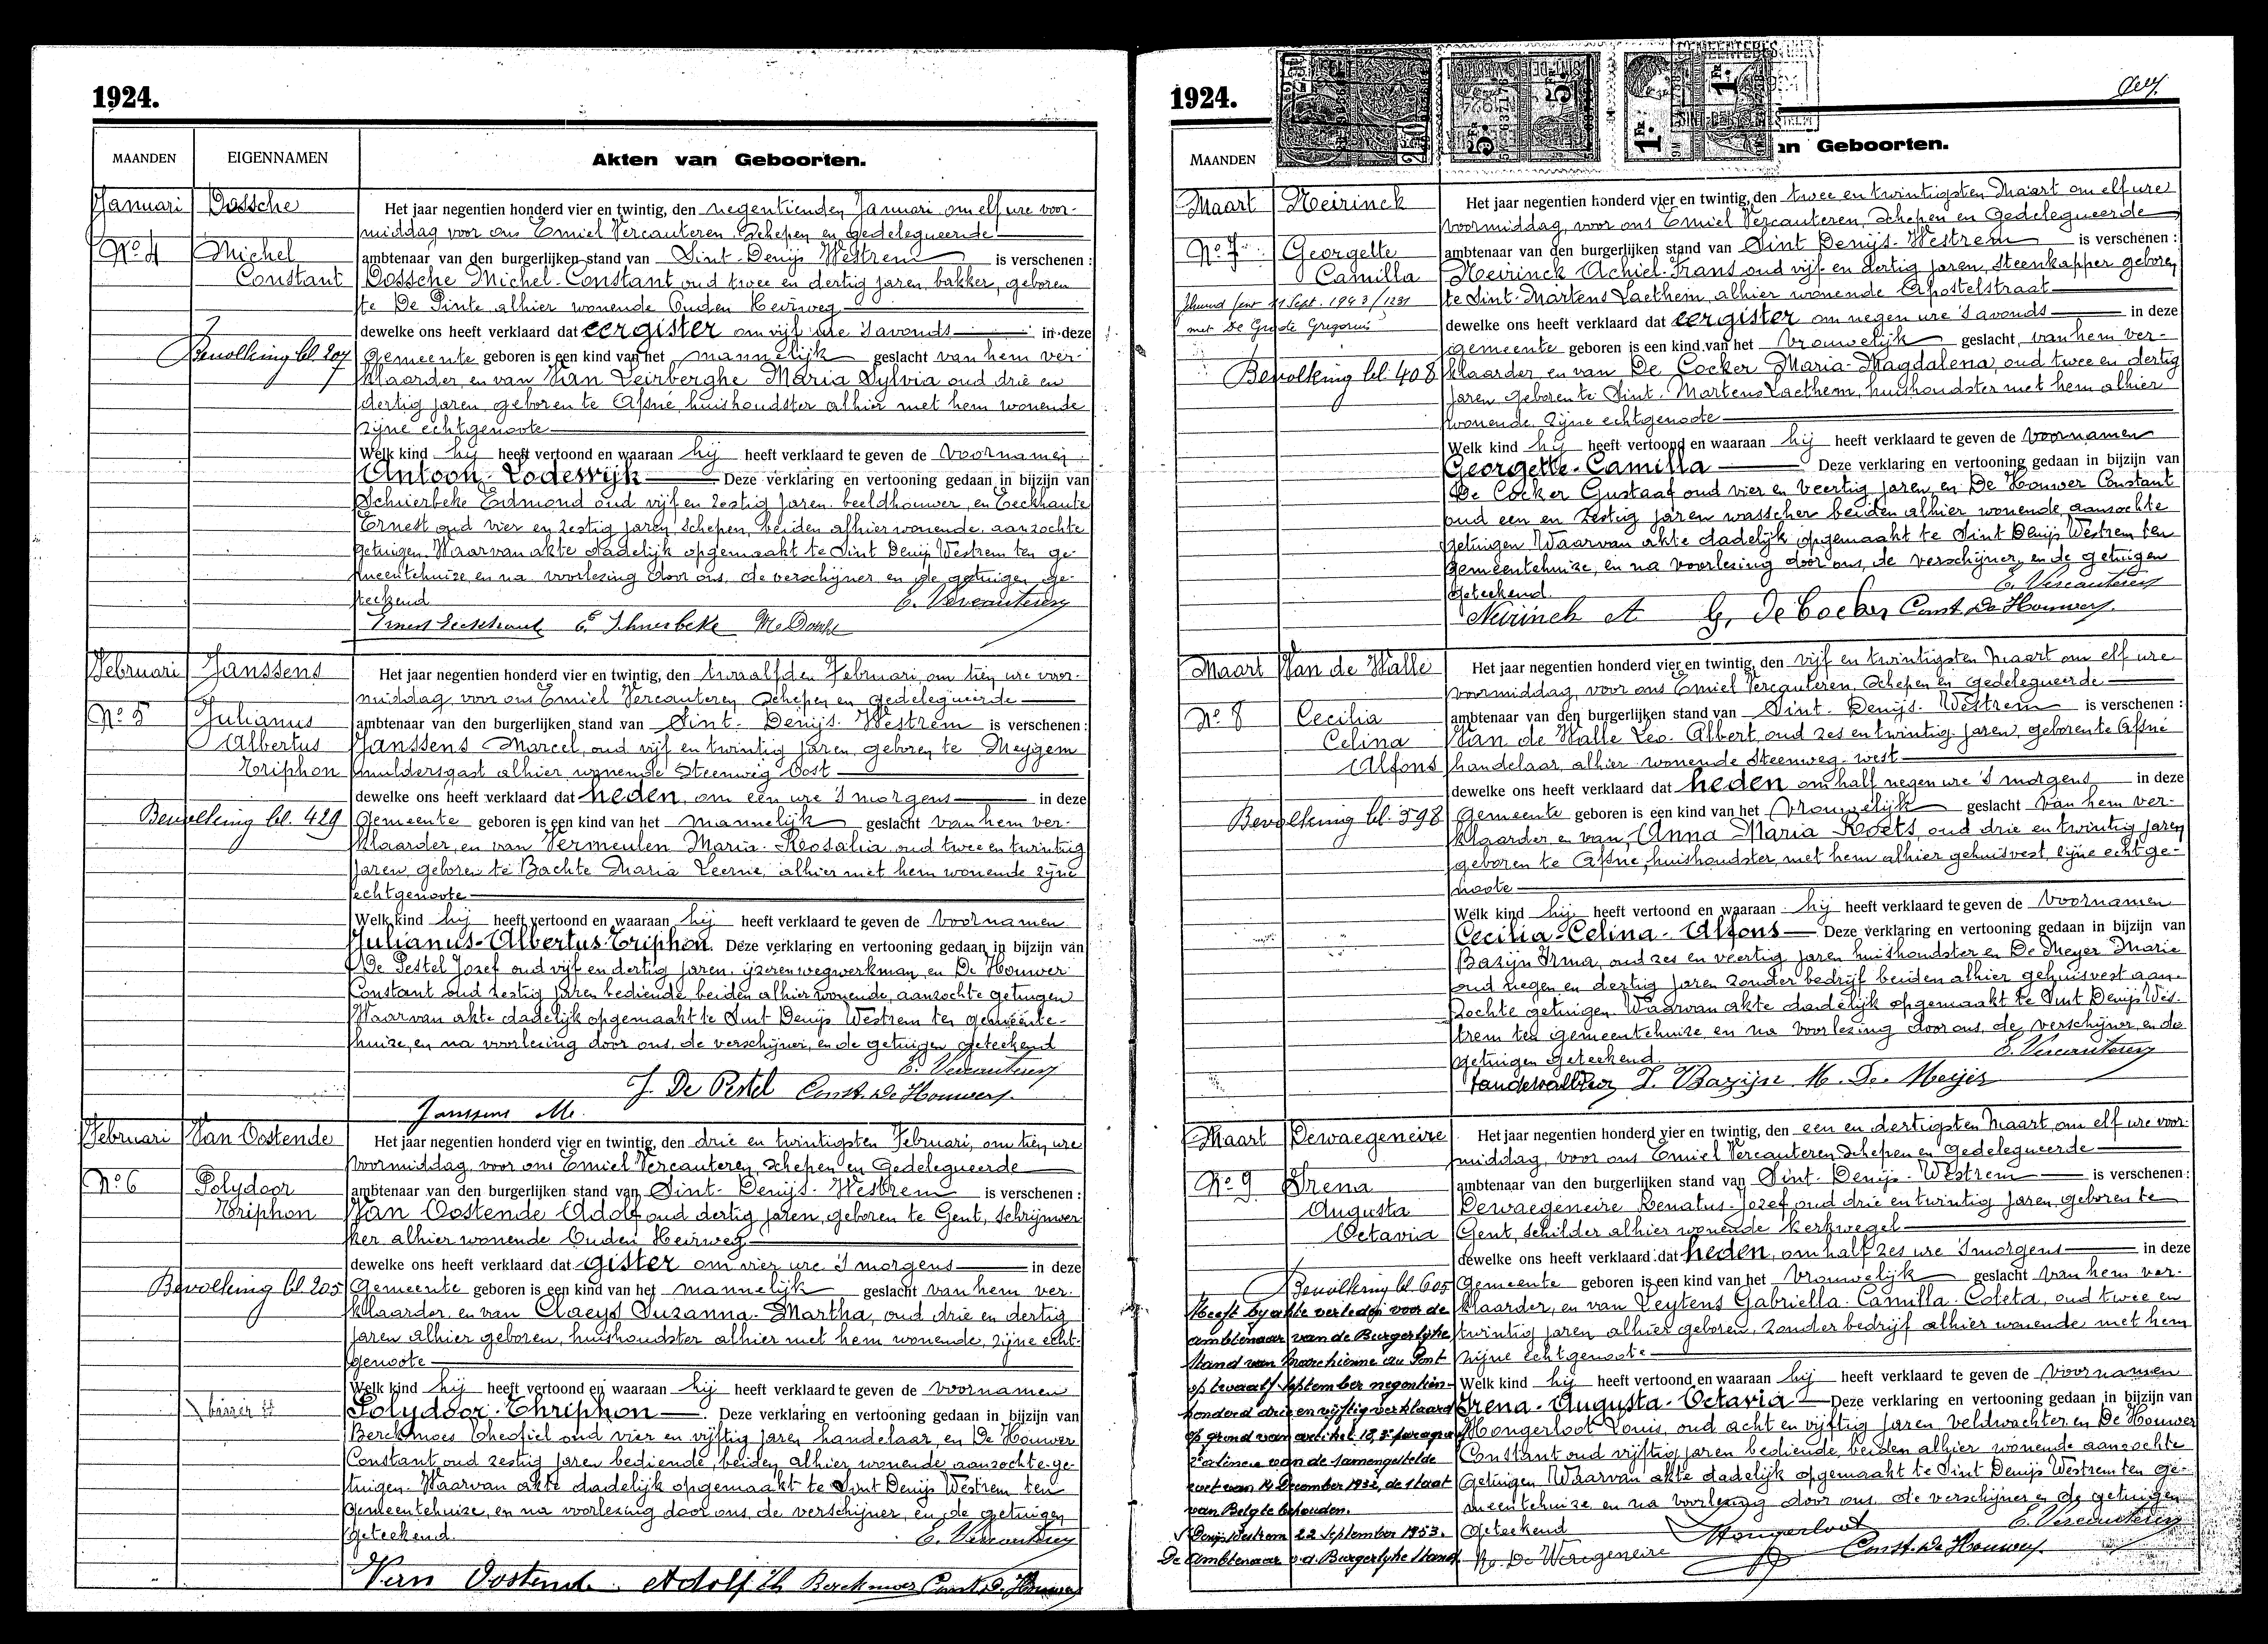 1924.
MAANDEN EIGENNAMEN Akten van Geboorten.
Januari Dossche
Nº 4 Michel
Constant
Bevolking bl. 207
Het jaar negentien honderd vier en twintig, den negentienden Januari om elf ure voor-
middag voor ons Emiel Vercauteren, Schepen en gedelegueerde
ambtenaar van den burgerlijken stand van Sint-Denijs Westrem is verschenen :
Dossche Michel-Constant oud twee en dertig jaren, bakker, geboren
te De Pinte alhier wonende Ouden Heirweg
dewelke ons heeft verklaard dat eergister om vijf ure 's avonds in deze
Gemeente geboren is een kind van het mannelijk geslacht van hem ver-
klaarder, en van Van Leirberghe Maria Sylvia oud drie en
dertig jaren geboren te Afsné, huishoudster alhier met hem wonende
zijne echtgenoote
Welk kind hij heeft vertoond en waaraan hij heeft verklaard te geven de voornamen
Antoon-Lodewijk Deze verklaring en vertooning gedaan in bijzijn van
Schierbeke Edmond oud vijf en zestig jaren beeldhouwer, en Eeckhaute
Ernest oud vier en zestig jaren schepen, beiden alhier wonende aanzochte
getuigen. Waarvan akte dadelijk opgemaakt te Sint Denijs Westrem ten ge-
meentehuize, en na voorlezing door ons, de verschijner en de getuigen ge-
teekend E. Vercauteren
M. Dossche
Februari Janssens
Nº 5 Julianus
Albertus
Triphon
Bevolking bl. 429
Het jaar negentien honderd vier en twintig, den twaalfden Februari, om tien ure voor-
middag, voor ons Emiel Vercauteren Schepen en gedelegueerde
ambtenaar van den burgerlijken stand van Sint-Denijs-Westrem is verschenen :
Janssens Marcel, oud vijf en twintig jaren, geboren te Meygem
muldersgast alhier wonende Steenweg Oost
dewelke ons heeft verklaard dat heden, om een ure 's morgens in deze
Gemeente geboren is een kind van het mannelijk geslacht van hem ver-
klaarder, en van Vermeulen Maria-Rosalia oud twee en twintig
jaren geboren te Bachte Maria Leerne, alhier met hem wonende zijne
echtgenoote
Welk kind hij heeft vertoond en waaraan hij heeft verklaard te geven de voornamen
Julianus-Albertus-Triphon. Deze verklaring en vertooning gedaan in bijzijn van
De Pestel Jozef oud vijf en dertig jaren, ijzerenwegwerkman, en De Houwer
Constant oud zestig jaren bediende, beiden alhier wonende, aanzochte getuigen
Waarvan akte dadelijk opgemaakt te Sint Denijs Westrem ten gemeente-
huize, en na voorlezing door ons, de verschijner, en de getuigen geteekend
E. Vercauteren
J. De Pestel Const. De Houwer
Janssens M.
Februari Van Oostende
Nº 6 Polydoor
Triphon
Bevolking bl 205
Het jaar negentien honderd vier en twintig, den drie en twintigsten Februari, om tien ure
voormiddag voor ons Emiel Vercauteren, Schepen en Gedelegueerde
ambtenaar van den burgerlijken stand van Sint-Denijs-Westrem is verschenen :
Van Oostende Adolf oud dertig jaren, geboren te Gent, schrijnwer-
ker alhier wonende Ouden Heirweg
dewelke ons heeft verklaard dat gister om vier ure 's morgens in deze
Gemeente geboren is een kind van het mannelijk geslacht van hem ver-
klaarder, en van Claeys Suzanna-Martha, oud drie en dertig
jaren alhier geboren, huishoudster alhier met hem wonende, zijne echt-
genoote
Welk kind hij heeft vertoond en waaraan hij heeft verklaard te geven de voornamen
Polydoor-Thriphon Deze verklaring en vertooning gedaan in bijzijn van
Berckmoes Theofiel oud vier en vijftig jaren handelaar, en De Houwer
Constant oud zestig jaren bediende, beiden alhier wonende aanzochte ge-
tuigen. Waarvan akte dadelijk opgemaakt te Sint Denijs Westrem ten
gemeentehuize, en na voorlezing door ons, de verschijner, en de getuigen
geteekend. E. Vercauteren
Van Oostende Adolf Th Berckmoes Const. De Houwer
1924.
MAANDEN an Geboorten.
Maart Neirinck
Nº 7 Georgette
Camilla
Sept. 1943/1231
met De Grode Gregorius
Bevolking bl. 408
Het jaar negentien honderd vier en twintig, den twee en twintigsten Maart om elf ure
voormiddag, voor ons Emiel Vercauteren, Schepen en Gedelegueerde
ambtenaar van den burgerlijken stand van Sint Denijs-Westrem is verschenen :
Neirinck Achiel-Frans oud vijf en dertig jaren, Steenkapper geboren
te Sint-Martens Laethem, alhier wonende Apostelstraat
dewelke ons heeft verklaard dat eergister om negen ure 's avonds in deze
gemeente geboren is een kind van het vrouwelijk geslacht, van hem ver-
klaarder en van De Cocker Maria-Magdalena, oud twee en dertig
jaren geboren te Sint-Martens Laethem, huishoudster met hem alhier
wonende, zijne echtgenoote
Welk kind hij heeft vertoond en waaraan hij heeft verklaard te geven de voornamen
Georgette-Camilla Deze verklaring en vertooning gedaan in bijzijn van
De Cocker Gustaaf oud vier en veertig jaren, en De Houwer Constant
oud een en zestig jaren wasscher beiden alhier wonende, aanzochte
getuigen Waarvan akte dadelijk opgemaakt te Sint Denijs Westrem ten
gemeentehuize, en na voorlezing door ons, de verschijner, en de getuigen
geteekend. E. Vercauteren
Neirinck A G. De Cocker Const. De Houwer
Maart Van de Walle
Nº 8 Cecilia
Celina
Alfons
Bevolking bl. 598
Het jaar negentien honderd vier en twintig, den vijf en twintigsten Maart om elf ure
voormiddag, voor ons Emiel Vercauteren, Schepen en Gedelegueerde
ambtenaar van den burgerlijken stand van Sint-Denijs-Westrem is verschenen :
Van de Walle Leo-Albert, oud zes en twintig jaren, geboren te Afsné
handelaar, alhier wonende Steenweg-west
dewelke ons heeft verklaard dat heden om half negen ure 's morgens in deze
Gemeente geboren is een kind van het vrouwelijk geslacht van hem ver-
klaarder en van Anna Maria Roets, oud drie en twintig jaren
geboren te Afsné, huishoudster, met hem alhier gehuisvest, zijne echtge-
noote
Welk kind hij heeft vertoond en waaraan hij heeft verklaard te geven de voornamen
Cecilia-Celina-Alfons Deze verklaring en vertooning gedaan in bijzijn van
Bazijn Irma, oud zes en veertig jaren huishoudster en De Meyer Marie
oud negen en dertig jaren zonder bedrijf beiden alhier gehuisvest aan-
zochte getuigen. Waarvan akte dadelijk opgemaakt te Sint Denijs Wes-
trem ten gemeentehuize en na voorlezing door ons, de verschijner, en de
getuigen geteekend. E. Vercauteren
I. Bazijn M. De Meijer
Maart Dewaegeneire
Nº 9 Irena
Augusta
Octavia
Bevolking bl 605
Heeft by akte verleden voor de
ambtenaar van de Burgerlyke
stand van Marchienne au Pont
op twaalf september negentien-
honderd drie en vyftig verklaard
op grond van artikel 18, 3e paragraaf
2e alinea van de samengestelde
wet van 14 December 1932, de staat
van Belg te behouden.
St Denijs Westrem 22 September 1953.
De Ambtenaar v.d. Burgerlyke Stand.
Het jaar negentien honderd vier en twintig, den een en dertigsten Maart, om elf ure voor-
middag, voor ons Emiel Vercauteren Schepen en Gedelegueerde
ambtenaar van den burgerlijken stand van Sint-Denijs-Westrem is verschenen :
Dewaegeneire Renatus-Jozef, oud drie en twintig jaren geboren te
Gent, schilder alhier wonende Kerkwegel
dewelke ons heeft verklaard dat heden, om half zes ure 's morgens in deze
Gemeente geboren is een kind van het vrouwelijk geslacht van hem ver-
klaarder, en van Leytens Gabriella-Camilla-Coleta, oud twee en
twintig jaren alhier geboren, zonder bedrijf alhier wonende met hem
zijne echtgenoote
Welk kind hij heeft vertoond en waaraan hij heeft verklaard te geven de voornamen
Irena-Augusta-Octavia Deze verklaring en vertooning gedaan in bijzijn van
Hongerloot Louis, oud acht en vijftig jaren, veldwachter en De Houwer
Constant oud vijftig jaren bediende, beiden alhier wonende aanzochte
getuigen Waarvan akte dadelijk opgemaakt te Sint Denijs Westrem ten ge-
meentehuize en na voorlezing door ons, de verschijner en de getuigen
geteekend Hongerloot E. Vercauteren
Const. De Houwer